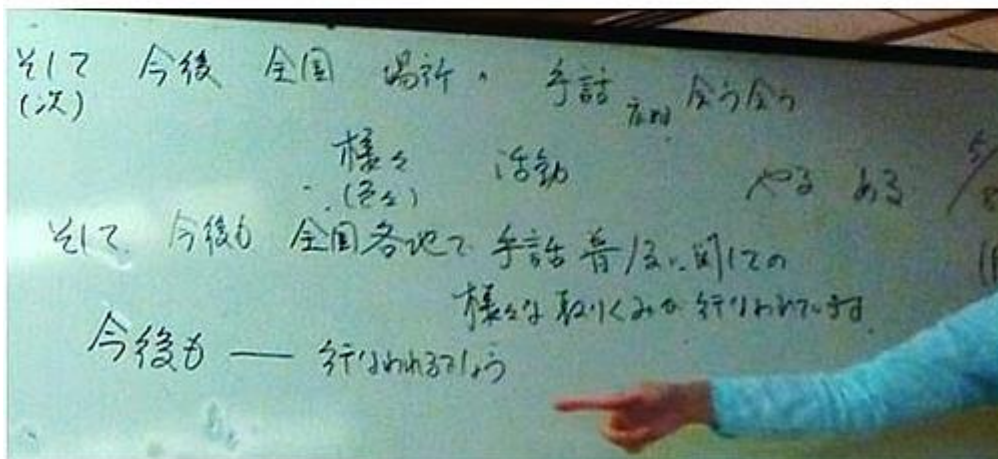 そして 今後 全国 場所、 手話 広める 会う会う
(次)
様々 活動 やる ある
(色々)
そして、今後も 全国各地で 手話普及に関しての
様々な取りくみが行なわれています。
今後も ― 行なわれるでしょう